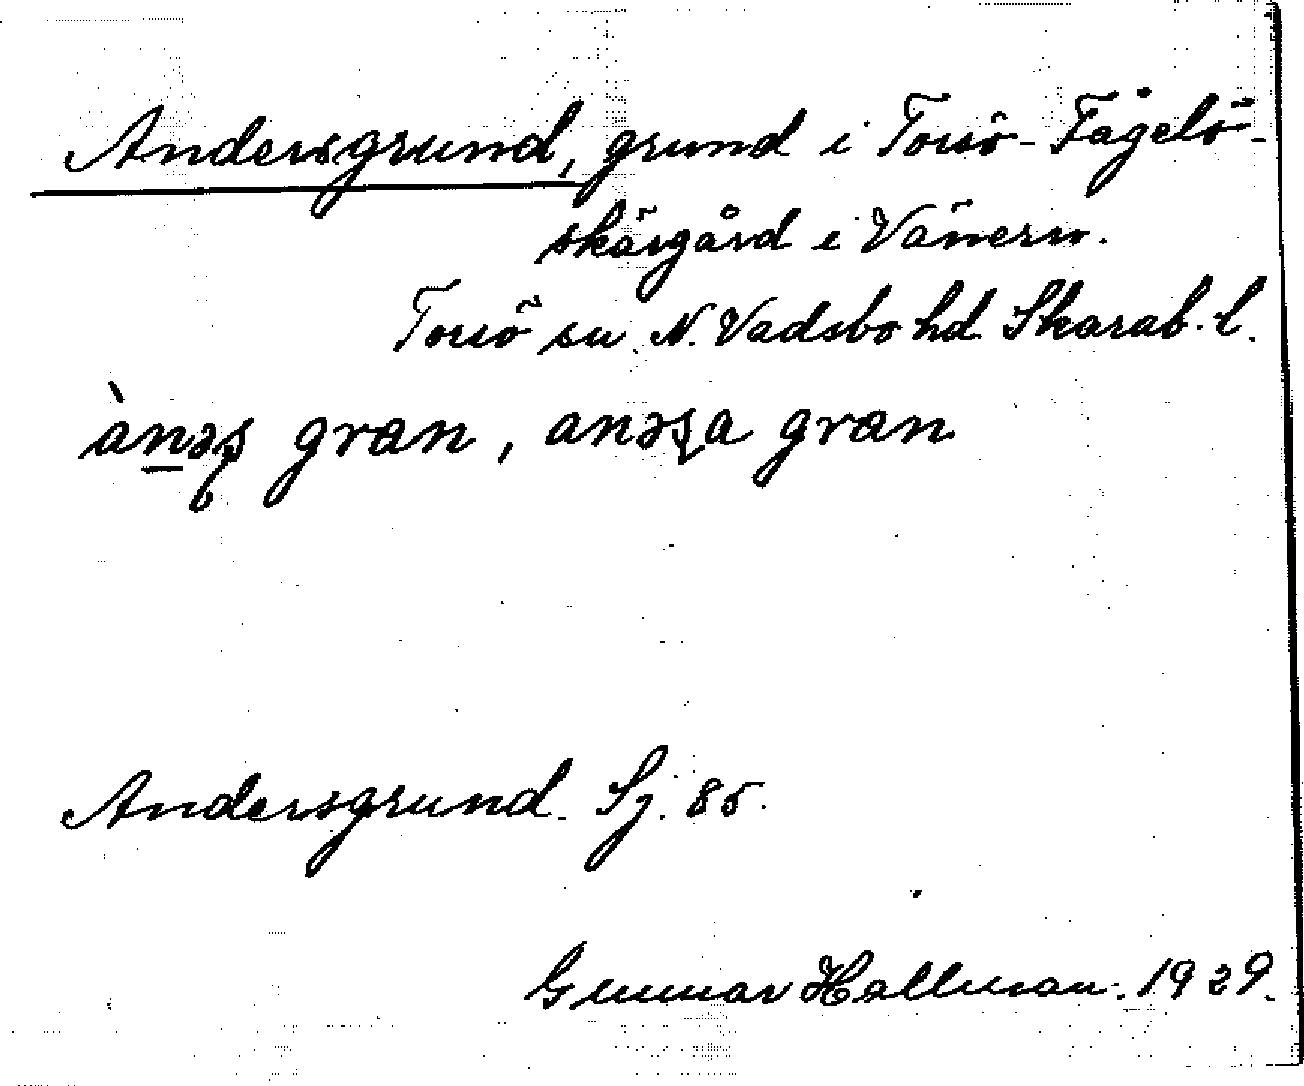 Andersgrund, grund i Torsö-Fågelö-
skärgård i Vänern.
Torsö sn N. Vadsbo hd Skarab. l.
ànəʂ gran, anəʂa gran
Andersgrund. Sj. 85.
Gunnar Hallman. 1929.